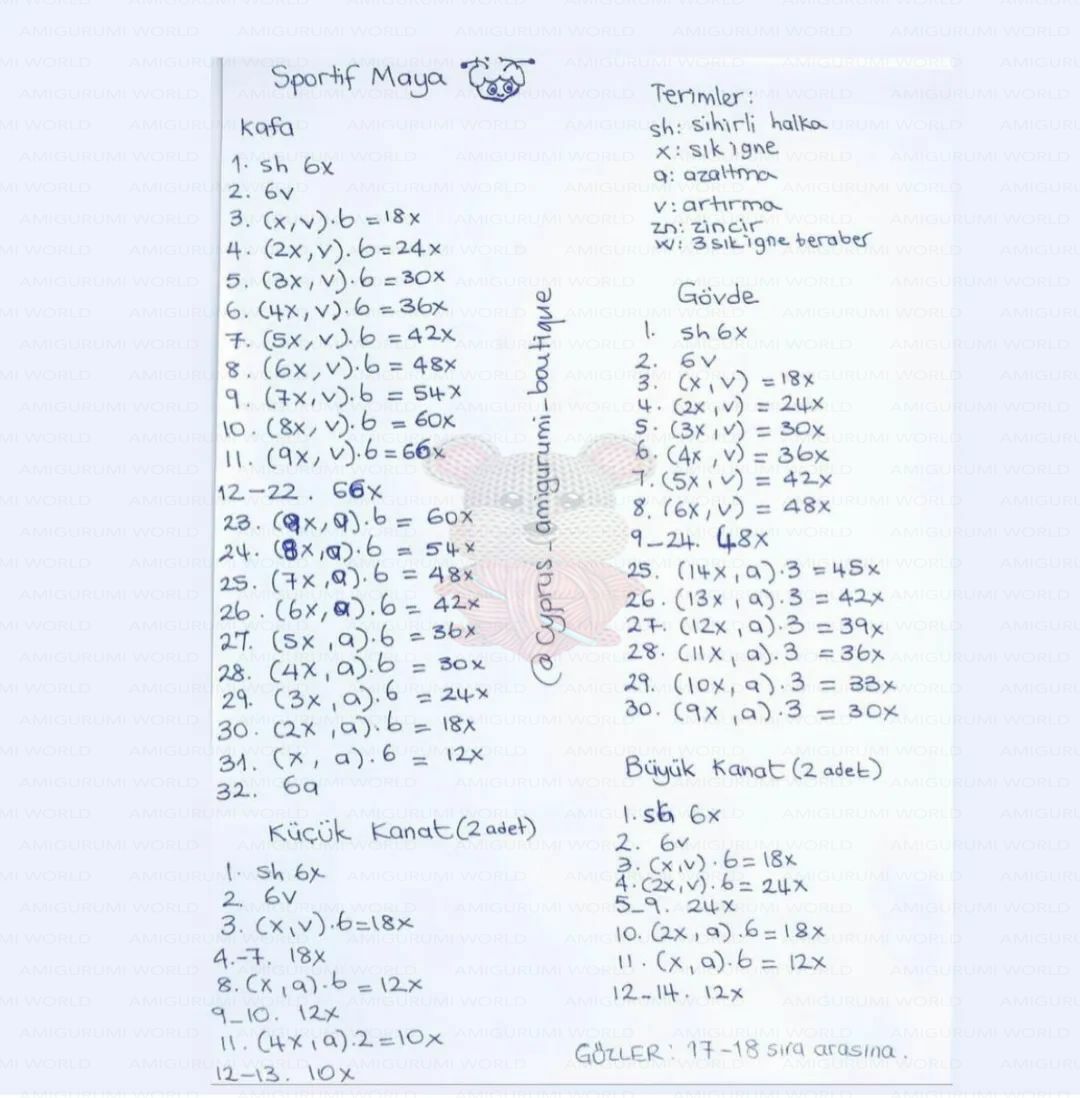 Sportif Maya
Kafa
1. sh 6x
2. 6v
3. (x,v).6 = 18x
4. (2x,v).6 = 24x
5. (3x,v).6 = 30x
6. (4x,v).6 = 36x
7. (5x,v).6 = 42x
8. (6x,v).6 = 48x
9. (7x,v).6 = 54x
10. (8x,v).6 = 60x
11. (9x,v).6 = 66x
12-22. 66x
23. (9x,a).6 = 60x
24. (8x,a).6 = 54x
25. (7x,a).6 = 48x
26. (6x,a).6 = 42x
27. (5x,a).6 = 36x
28. (4x,a).6 = 30x
29. (3x,a).6 = 24x
30. (2x,a).6 = 18x
31. (x,a).6 = 12x
32. 6a
Küçük Kanat (2 adet)
1. sh 6x
2. 6v
3. (x,v).6=18x
4.-7. 18x
8. (x,a).6 = 12x
9-10. 12x
11. (4x,a).2=10x
12-13. 10x
@cyprus-amigurumi-boutique
Terimler:
sh: sihirli halka
x: sık iğne
a: azaltma
v: artırma
zn: zincir
w: 3 sık iğne beraber
Gövde
1. sh 6x
2. 6v
3. (x,v) = 18x
4. (2x,v) = 24x
5. (3x,v) = 30x
6. (4x,v) = 36x
7. (5x,v) = 42x
8. (6x,v) = 48x
9-24. 48x
25. (14x,a).3 = 45x
26. (13x,a).3 = 42x
27. (12x,a).3 = 39x
28. (11x,a).3 = 36x
29. (10x,a).3 = 33x
30. (9x,a).3 = 30x
Büyük Kanat (2 adet)
1. sh 6x
2. 6v
3. (x,v).6=18x
4. (2x,v).6=24x
5-9. 24x
10. (2x,a).6=18x
11. (x,a).6 = 12x
12-14. 12x
GÖZLER: 17-18 sıra arasına.
AMIGURUMI WORLD